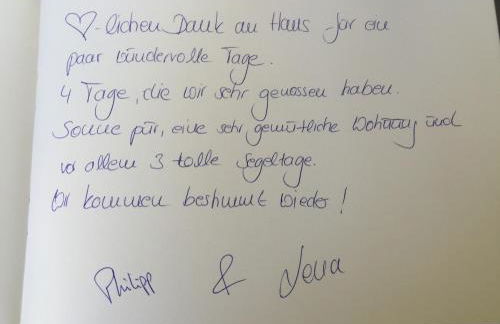 ♡-lichen Dank an Haus für ein
paar wundervolle Tage.
4 Tage, die wir sehr genossen haben.
Sonne pur, eine sehr gemütliche Wohnung und
vor allem 3 tolle Segeltage.
Wir kommen bestimmt wieder!
Philipp & Jena